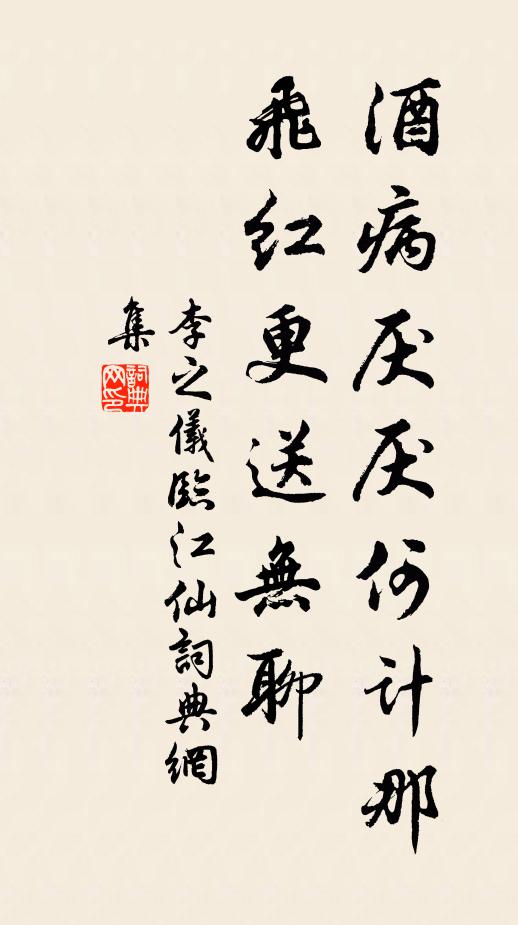 酒病厌厌何计那
飛红更送無聊
李之儀臨江仙詞典網
集
詞典
网印